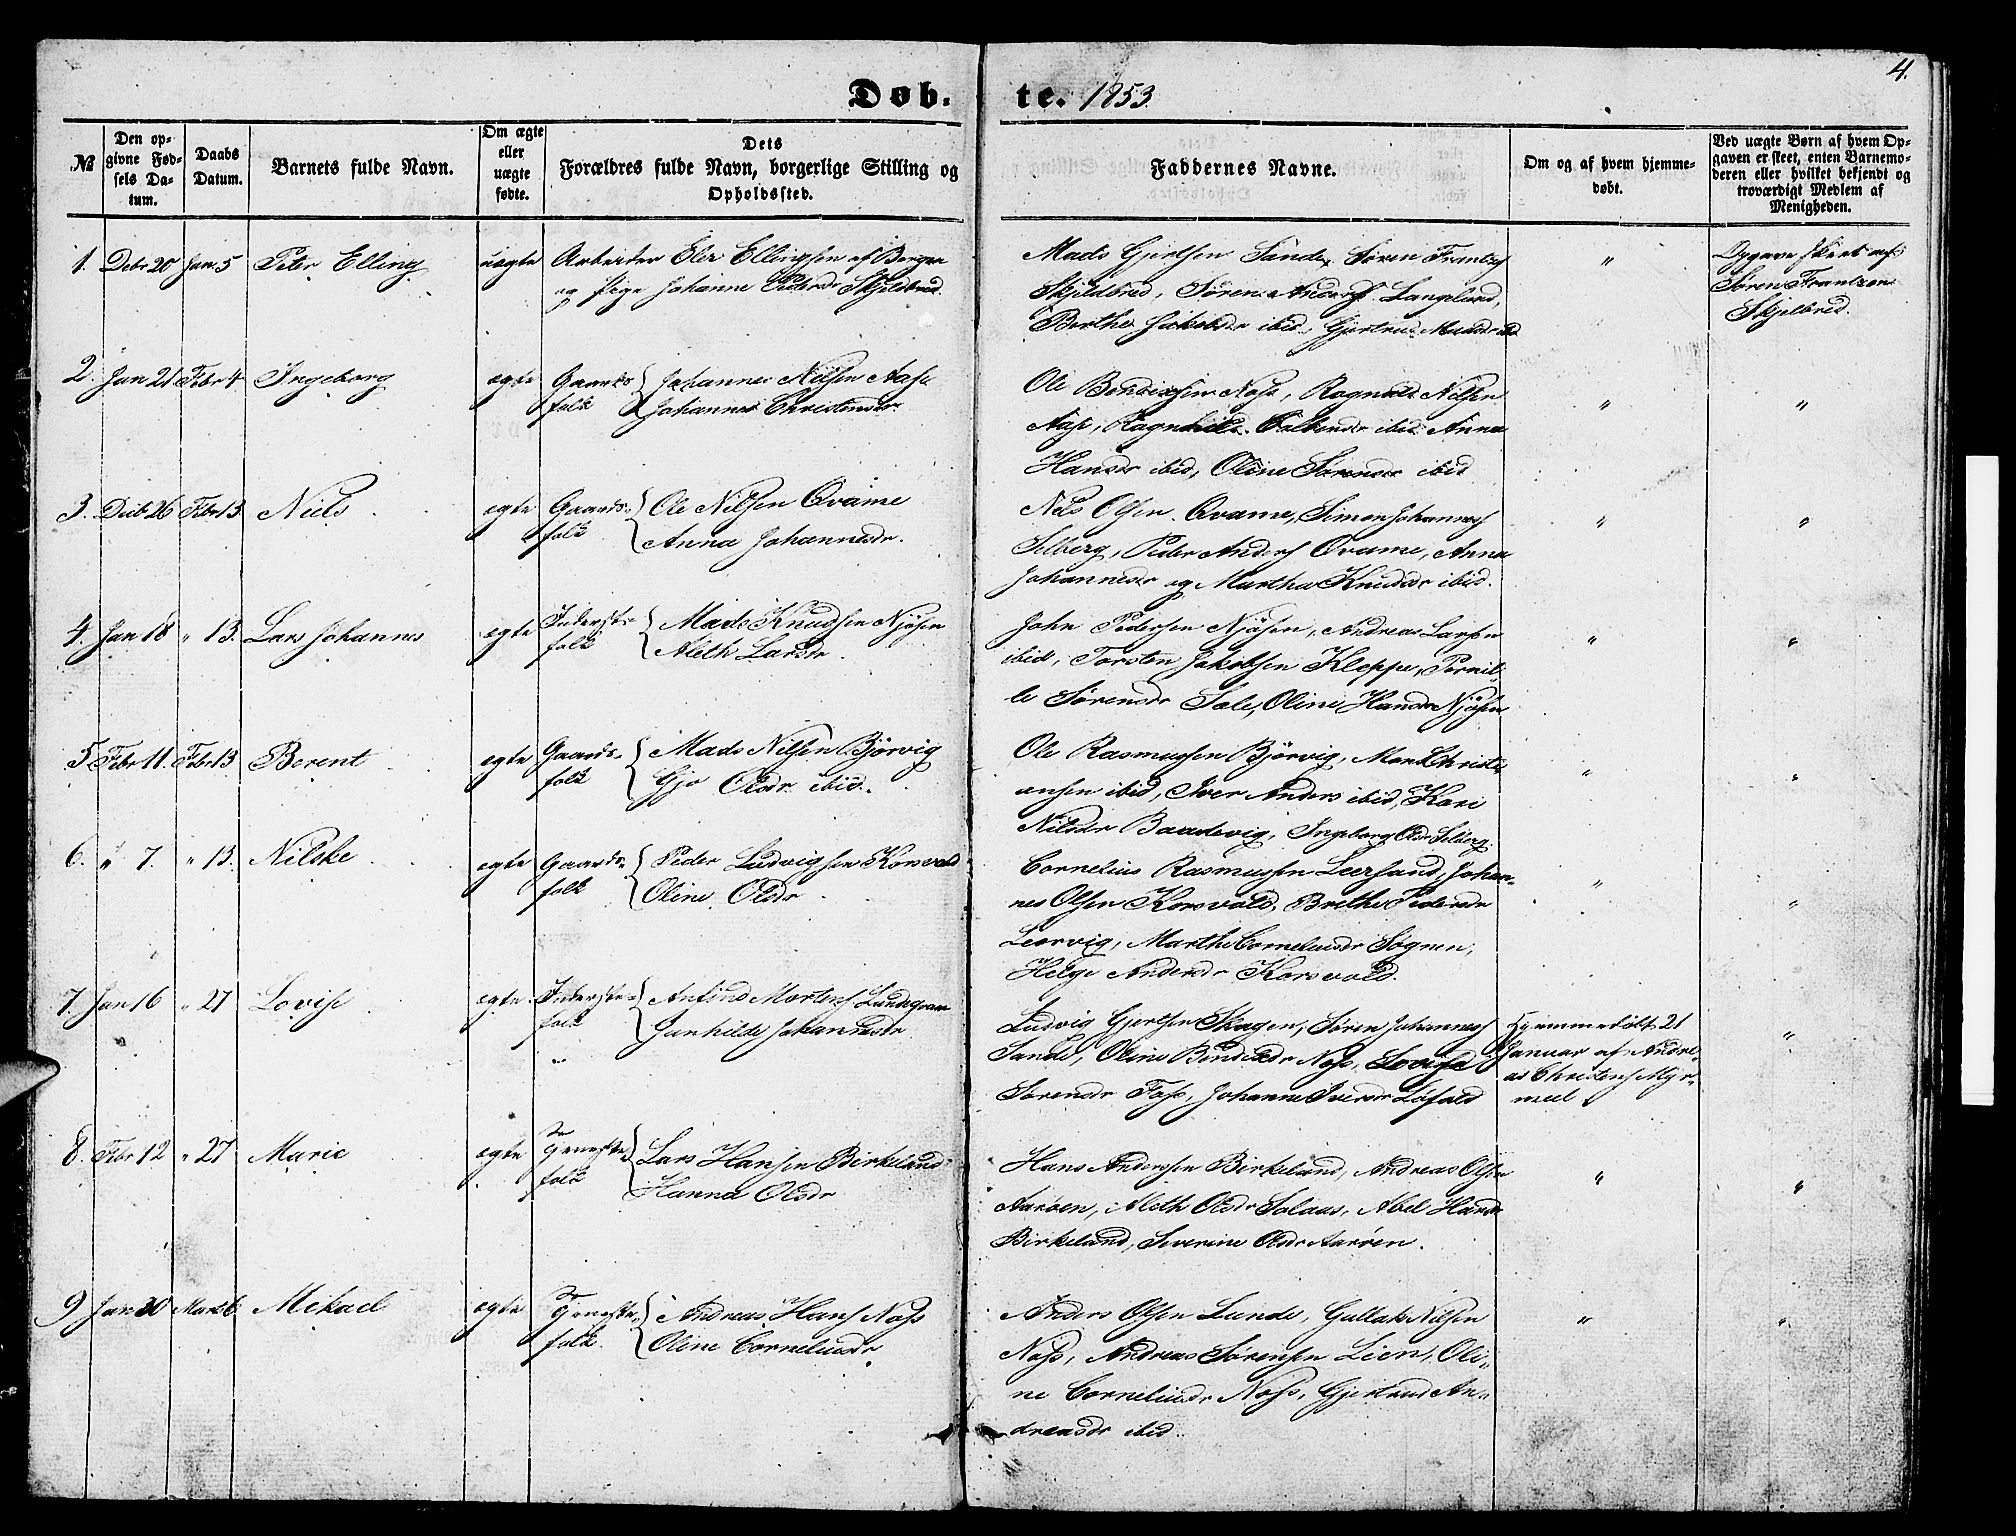 4.
Døb- te. 1853.
№
Den op-
givne Fød-
sels Da-
tum.
Daabs
Datum.
Barnets fulde Navn.
Om ægte
eller
uægte
fødte.
Dets
Forældres fulde Navn, borgerlige Stilling og
Opholdssted.
Faddernes Navne.
Om og af hvem hjemme-
døbt.
Ved uægte Børn af hvem Op-
gaven er skeet, enten Barnemo-
deren eller hvilket bekjendt og
troværdigt Medlem af
Menigheden.
1. Debr 20 Jan 5 Peter Elling uægte Arbeider Eler Ellingsen af Bergen
og Pige Johanne Pedersdr Skjeldbred.
Mads Gjertsen Sande, Søren Frantzs
Skjeldbred, Søren Anders Langeland,
Berthe Jakobsdr ibid, Gjertrud Madsdr ibid
"
Opgave skeet af
Søren Frantzen
Skjelbred.
2. Jan 21 Febr 4 Ingeborg ægte Gaards Johannes Nilsen Aase
folk Johanne Christensdr.
Ole Bendixsen Næss, Ragnald Nilsen
Aase, Ragnhild ibid Anna
Hansdr ibid, Oline Sørensdr ibid
" "
3. Deeb 26 Febr 13 Niels ægte Gaards- Ole Nilsen Qvame
folk Anna Johannesdr.
Nels Olsen Qvame, Simon Johanness
Selberg, Peder Anders Qvame, Anna
Johannesdr og Martha Knudsdr ibid.
" "
4. Jan 18 " 13. Lars Johannes ægte Inderste- Mads Knudsen Njøsen
folk Aleth Larsdr.
John Pedersen Njøsen, Andreas Larsen
ibid, Torsten Jakobsen Kleppe, Pernil-
le Sørensdr Sæle, Oline Hansdr Njøsen
" "
5 Febr 11. Febr 13 Berent ægte Gaards- Mads Nilsen Bjørvig
folk Gjo Olsdr ibid.
Ole Rasmussen Bjørvig, Mons Christi-
ansen ibid, Iver Anders ibid, Kari
Nilsdr Baadevig, Ingeborg Olsdr Selberg.
" "
6. " 7. " 13. Nilske ægte Gaards- Peder Ludvigsen Korsvold
folk Oline Olsdr
Cornelius Rasmussen Leersand, Johan-
nes Olsen Korsvold, Brethe Pedersdr
Leervig, Marthe Corneliusdr Søgnen,
Helge Andersdr Korsvold.
" "
7. Jan 16 " 27 Lovise ægte Inderste- Anfind Mortens
folk Gunhilde Johannesdr
Ludvig Gjertsen Skagen, Søren Johanness
Sande, Oline Bendixdr Næss, Lovise
Sørensdr Foss, Johanne Iversdr Løfald
Hjemmedøbt 21
Januar af Andre-
as Christens Myr-
meel
"
8. Febr 12 " 27 Marie ægte Tjeneste- Lars Hansen Birkeland
folk Hanna Olsdr
Hans Anderssen Birkeland, Andreas Olsen
Aarøen, Aleth Olsdr Solaas, Abel Hansdr
Birkeland, Severine Olsdr Aarøen.
" "
9 Jan 30 Marts 6 Mikael ægte Tjeneste- Andreas Hans Næss
folk. Oline Corneliusdr
Anders Olsen Lunde, Gullak Nilsen
Næss, Andreas Sørensen Lien, Oli-
ne Corneliusdr Næss, Gjertrud An-
dreasdr ibid.
" "